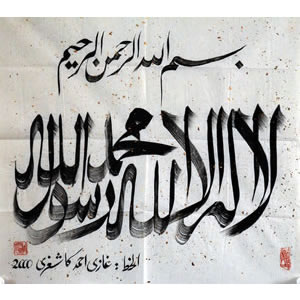 بسم الله الرحمن الرحيم
لا اله الا الله محمد رسول الله
الخط: غازی احمد کاشغری 2000